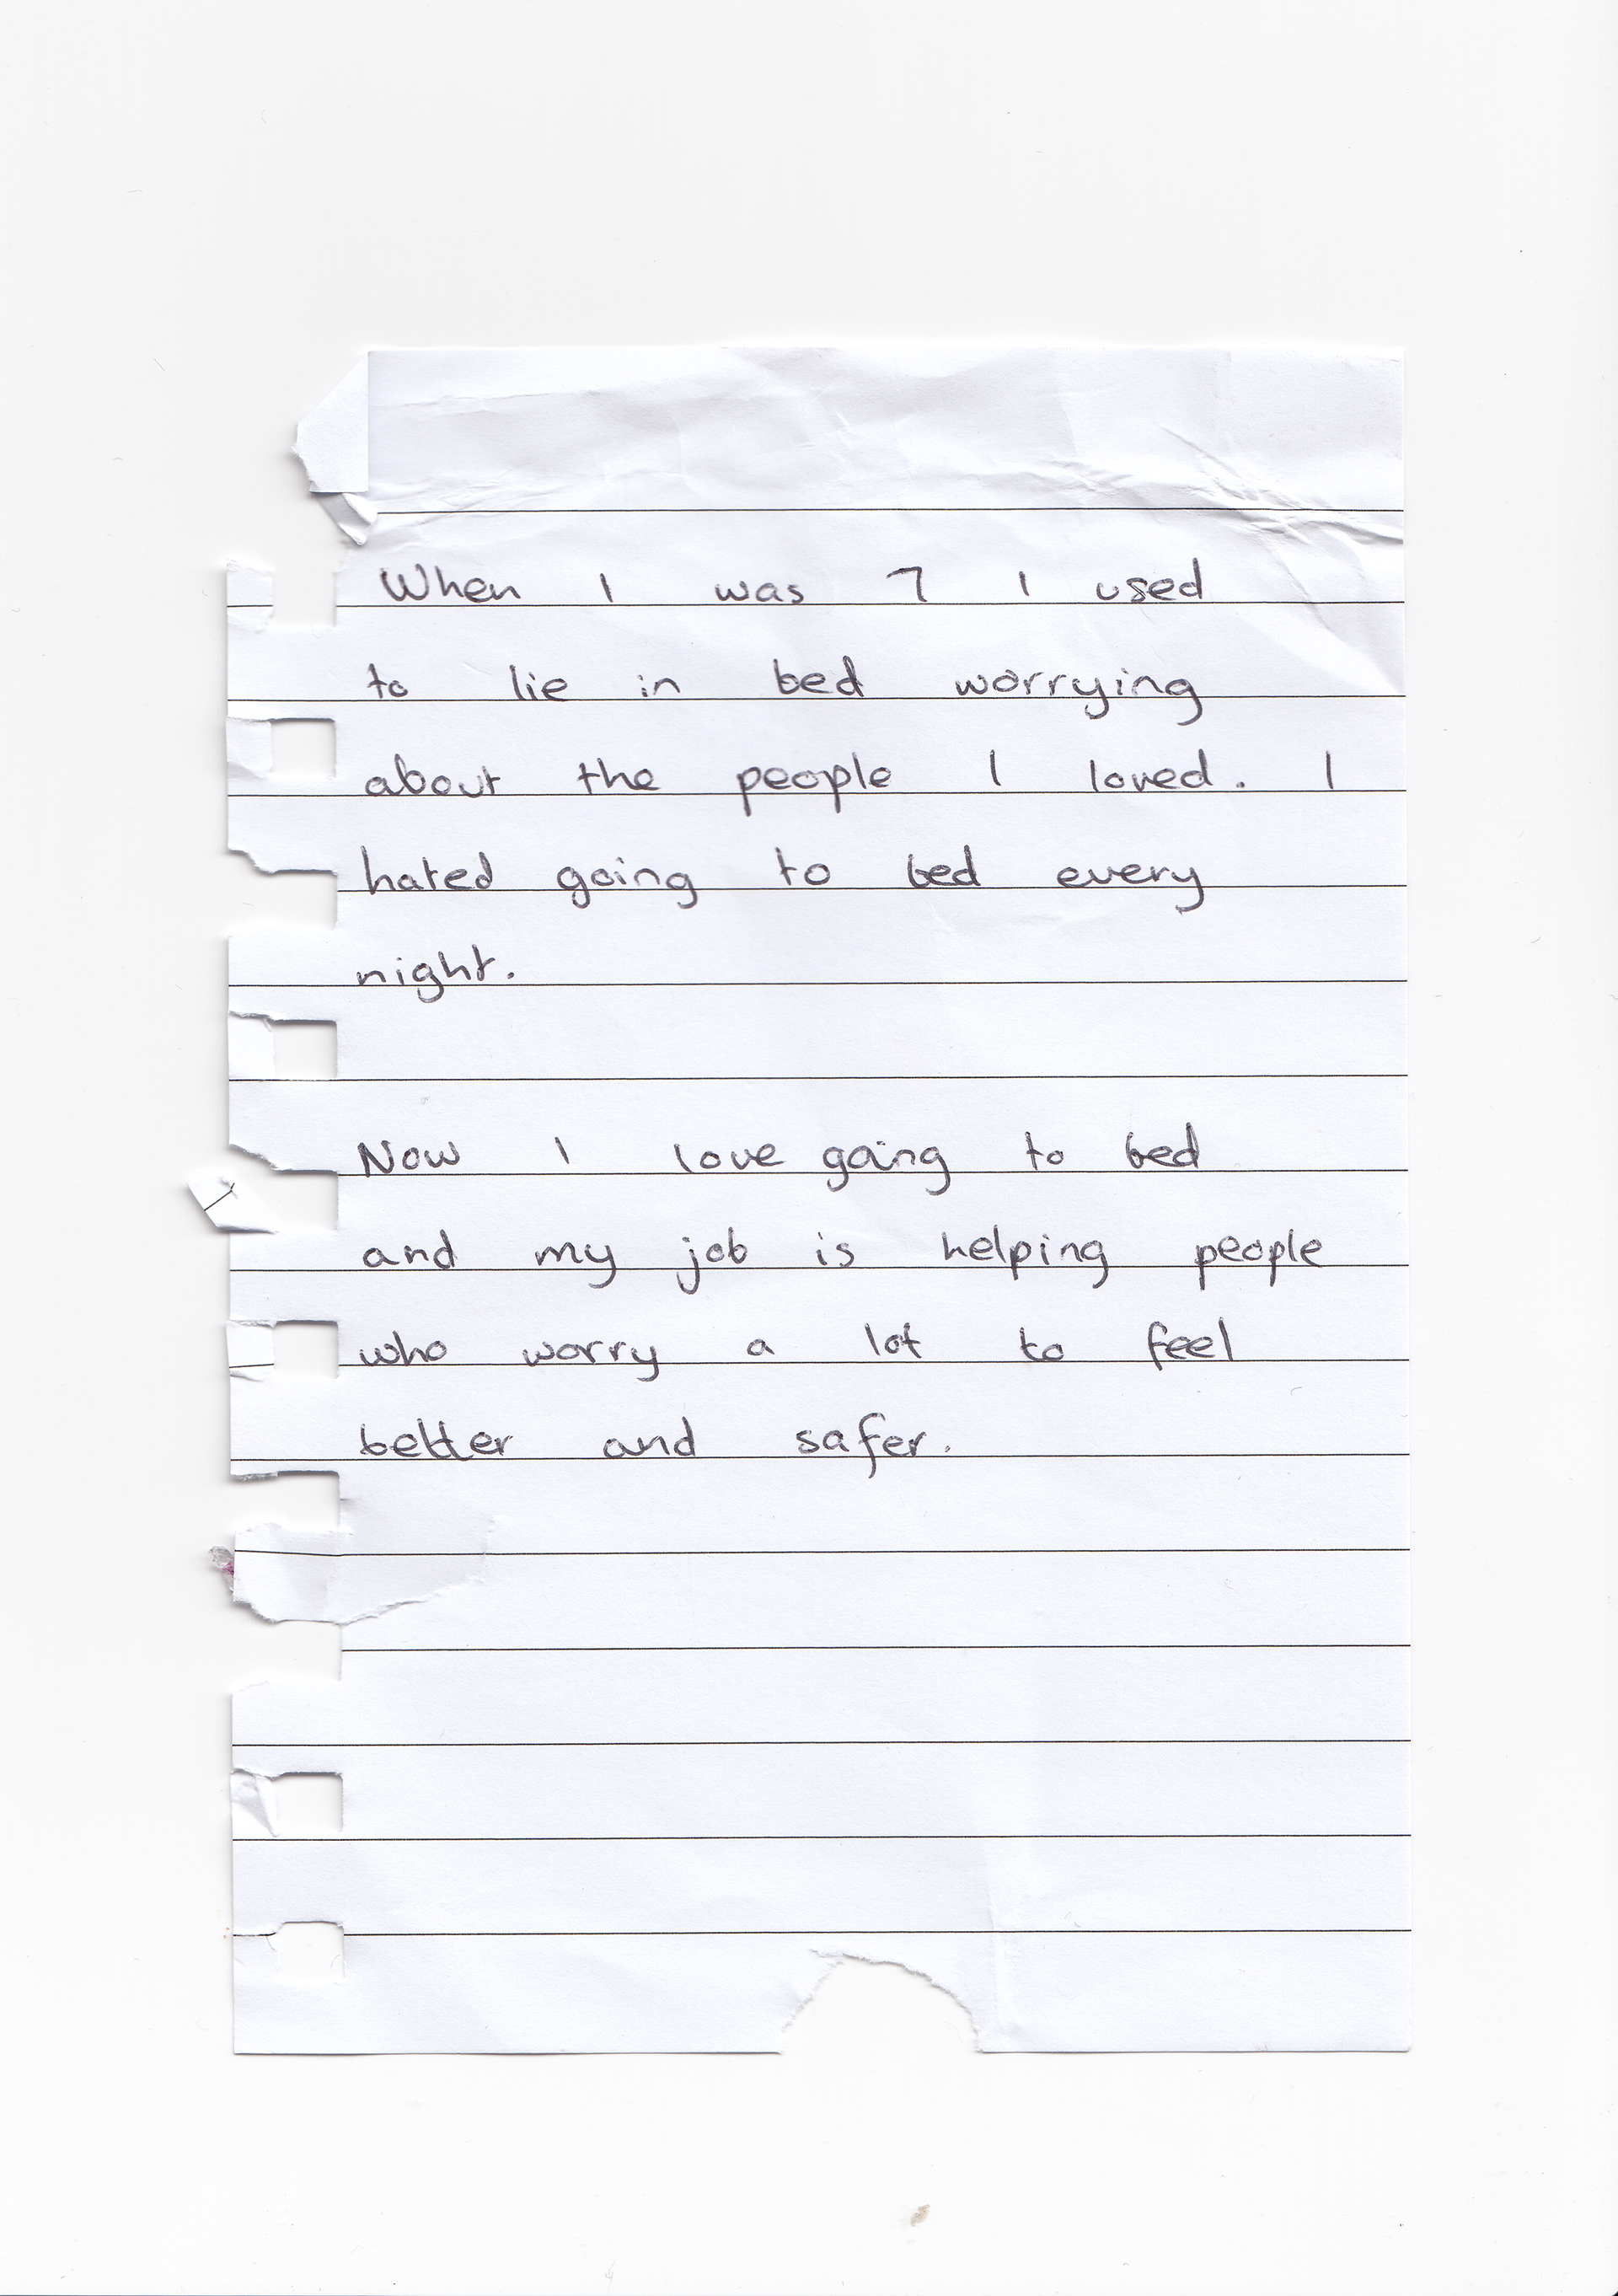 When I was 7 I used
to lie in bed worrying
about the people I loved. I
hated going to bed every
night.
Now I love going to bed
and my job is helping people
who worry a lot to feel
better and safer.